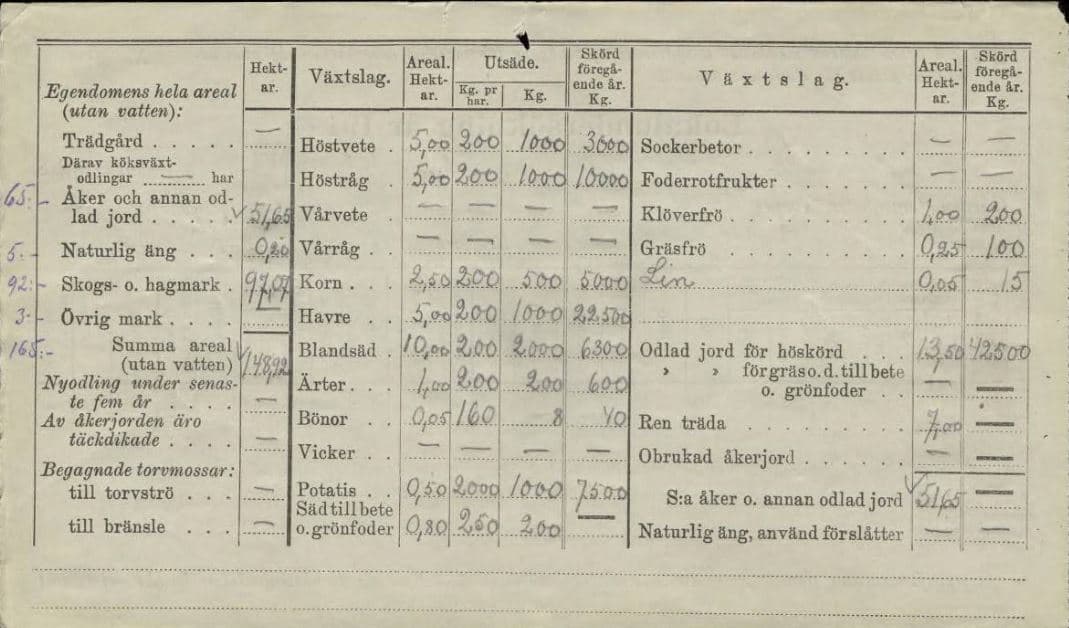 Egendomens hela areal (utan vatten): Hektar.
Trädgård . . . . . —
Därav köksväxtodlingar — har
65:- Åker och annan odlad jord . . . . 51,65
5:- Naturlig äng . . . 0,20
92:- Skogs- o. hagmark . 97,07
3- Övrig mark . . . .
165:- Summa areal (utan vatten) 148,92
Nyodling under senaste fem år . . . . —
Av åkerjorden äro täckdikade . . . . —
Begagnade torvmossar:
till torvströ . . . —
till bränsle . . . —
Växtslag. Areal. Hektar. Utsäde. Kg. pr har. Kg. Skörd föregående år. Kg.
Höstvete . 5,00 200 1000 3000
Höstråg . 5,00 200 1000 10000
Vårvete . . — — — —
Vårråg . . — — — —
Korn . . . 2,50 200 500 5000
Havre . . 5,00 200 1000 22500
Blandsäd . 10,00 200 2000 6300
Ärter . . . 1,00 200 200 600
Bönor . . 0,05 160 8 40
Vicker . . — — — —
Potatis . . 0,50 2000 1000 7500
Säd till bete o. grönfoder 0,80 250 200 —
Växtslag. Areal. Hektar. Skörd föregående år. Kg.
Sockerbetor . . . . . . . . — —
Foderrotfrukter . . . . . . — —
Klöverfrö . . . . . . . . . 1,00 200
Gräsfrö . . . . . . . . . . 0,25 100
Lin 0,05 15
Odlad jord för höskörd . . . 13,50 42500
» » för gräs o. d. till bete o. grönfoder . . — —
Ren träda . . . . . . . . 7,00 —
Obrukad åkerjord . . . . . . — —
S:a åker o. annan odlad jord 51,65 —
Naturlig äng, använd för slåtter — —